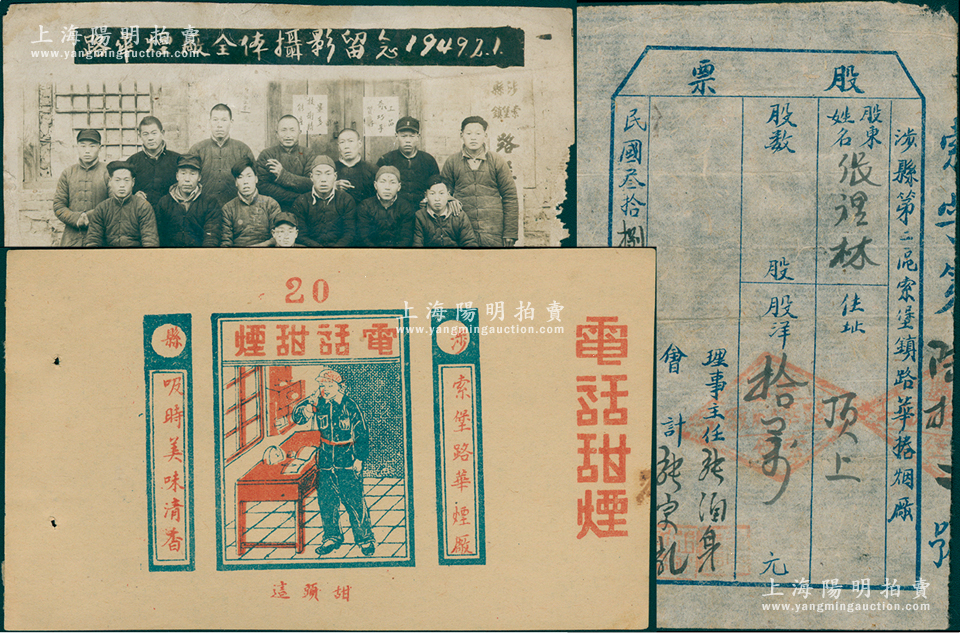 上海陽明拍賣
www.yangmingauction.com
路華烟厰全体攝影留念 1949.2.1.
上海陽明拍賣
www.yangmingauction.com
20
電話甜煙
涉縣
索堡路華煙廠
吸時美味清香
甜頭這
電話甜煙
股票
涉縣第二區索堡鎮路華捲烟厰
股東姓名 張 林 住址 頂上
股数 股 股洋 拾万 元
理事主任
會計
民國叁拾捌
上海陽明拍賣
www.yangmingauction.com